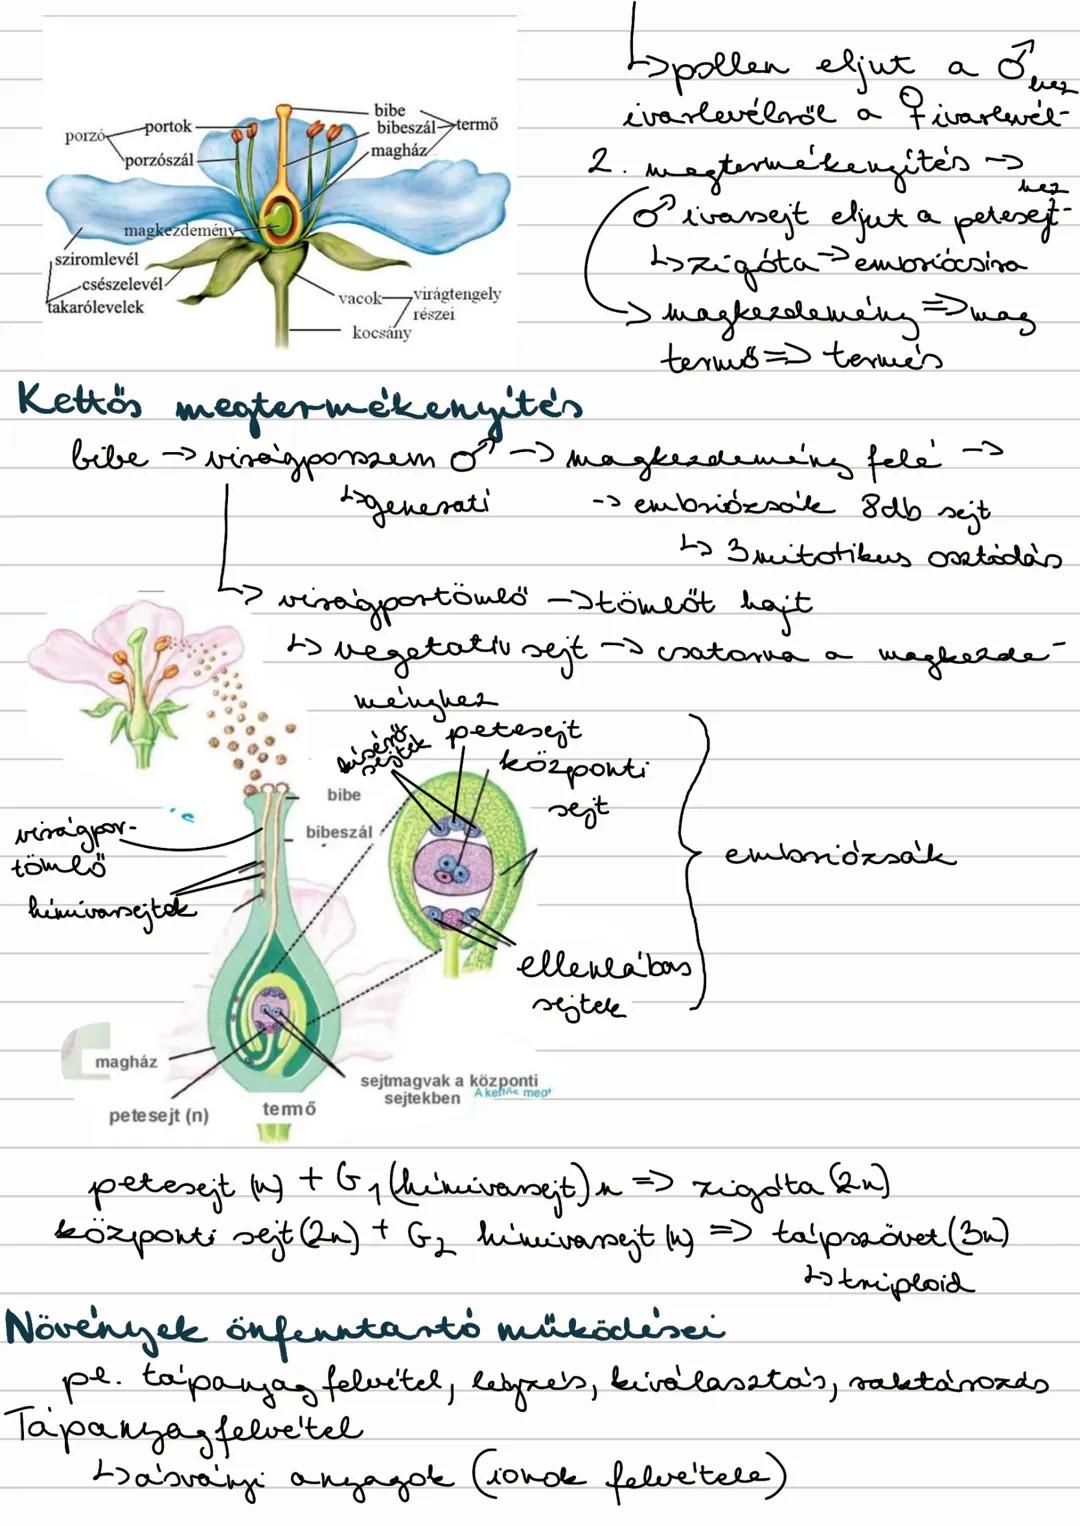 ↳pollen eljut a ♂
ivarlevélről a ♀ivarlevél-
hez
2. megtermékenyítés →
♂ ivarsejt eljut a petesejt-
hez
↳zigóta→embrió csíra
→ magkezdemény ⇒mag
termő ⇒ termés
porzó
portok
porzószál
bibe
bibeszál
termő
magház
magkezdemény
sziromlevél
csészelevél
takarólevelek
vacok
virágtengely
részei
kocsány
Kettős megtermékenyítés
bibe → virágporszem ♂ → magkezdemény felé →
↳generatí
→ embriózsák 8db sejt
↳ 3 mitotikus osztódás
↳ virágportömlő → tömlőt hajt
↳ vegetatív sejt → csatorna a magkezde-
ményhez
kísérő
sejtek
petesejt
központi
sejt
bibe
bibeszál
virágpor-
tömlő
hímivarsejtek
embriózsák
ellenlábas
sejtek
magház
petesejt (n)
termő
sejtmagvak a központi
sejtekben
A kettős megt
petesejt (n) + G₁ (hímivarsejt) n ⇒ zigóta (2n)
központi sejt (2n) + G₂ hímivarsejt (n) ⇒ táipszövet (3n)
↳ triploid
Növények önfenntartó működései
pl. tápanyag felvétel, légzés, kiválasztás, raktározás
Tápanyagfelvétel
↳ásványi anyagok (ionok felvétele)